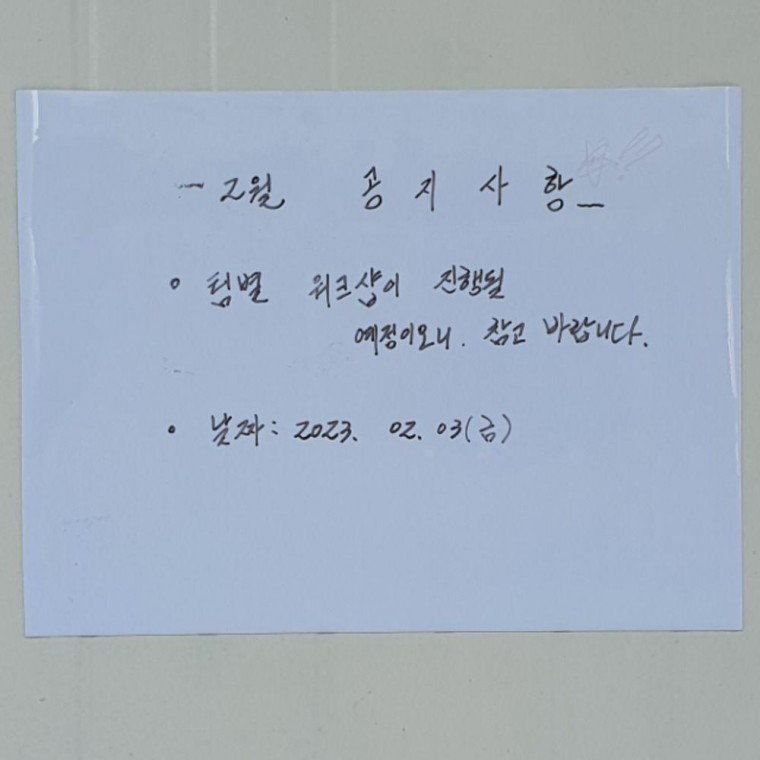 ~ 2월 공지사항 ~
• 팀별 워크샵이 진행될
예정이오니. 참고 바랍니다.
• 날짜: 2023. 02. 03(금)